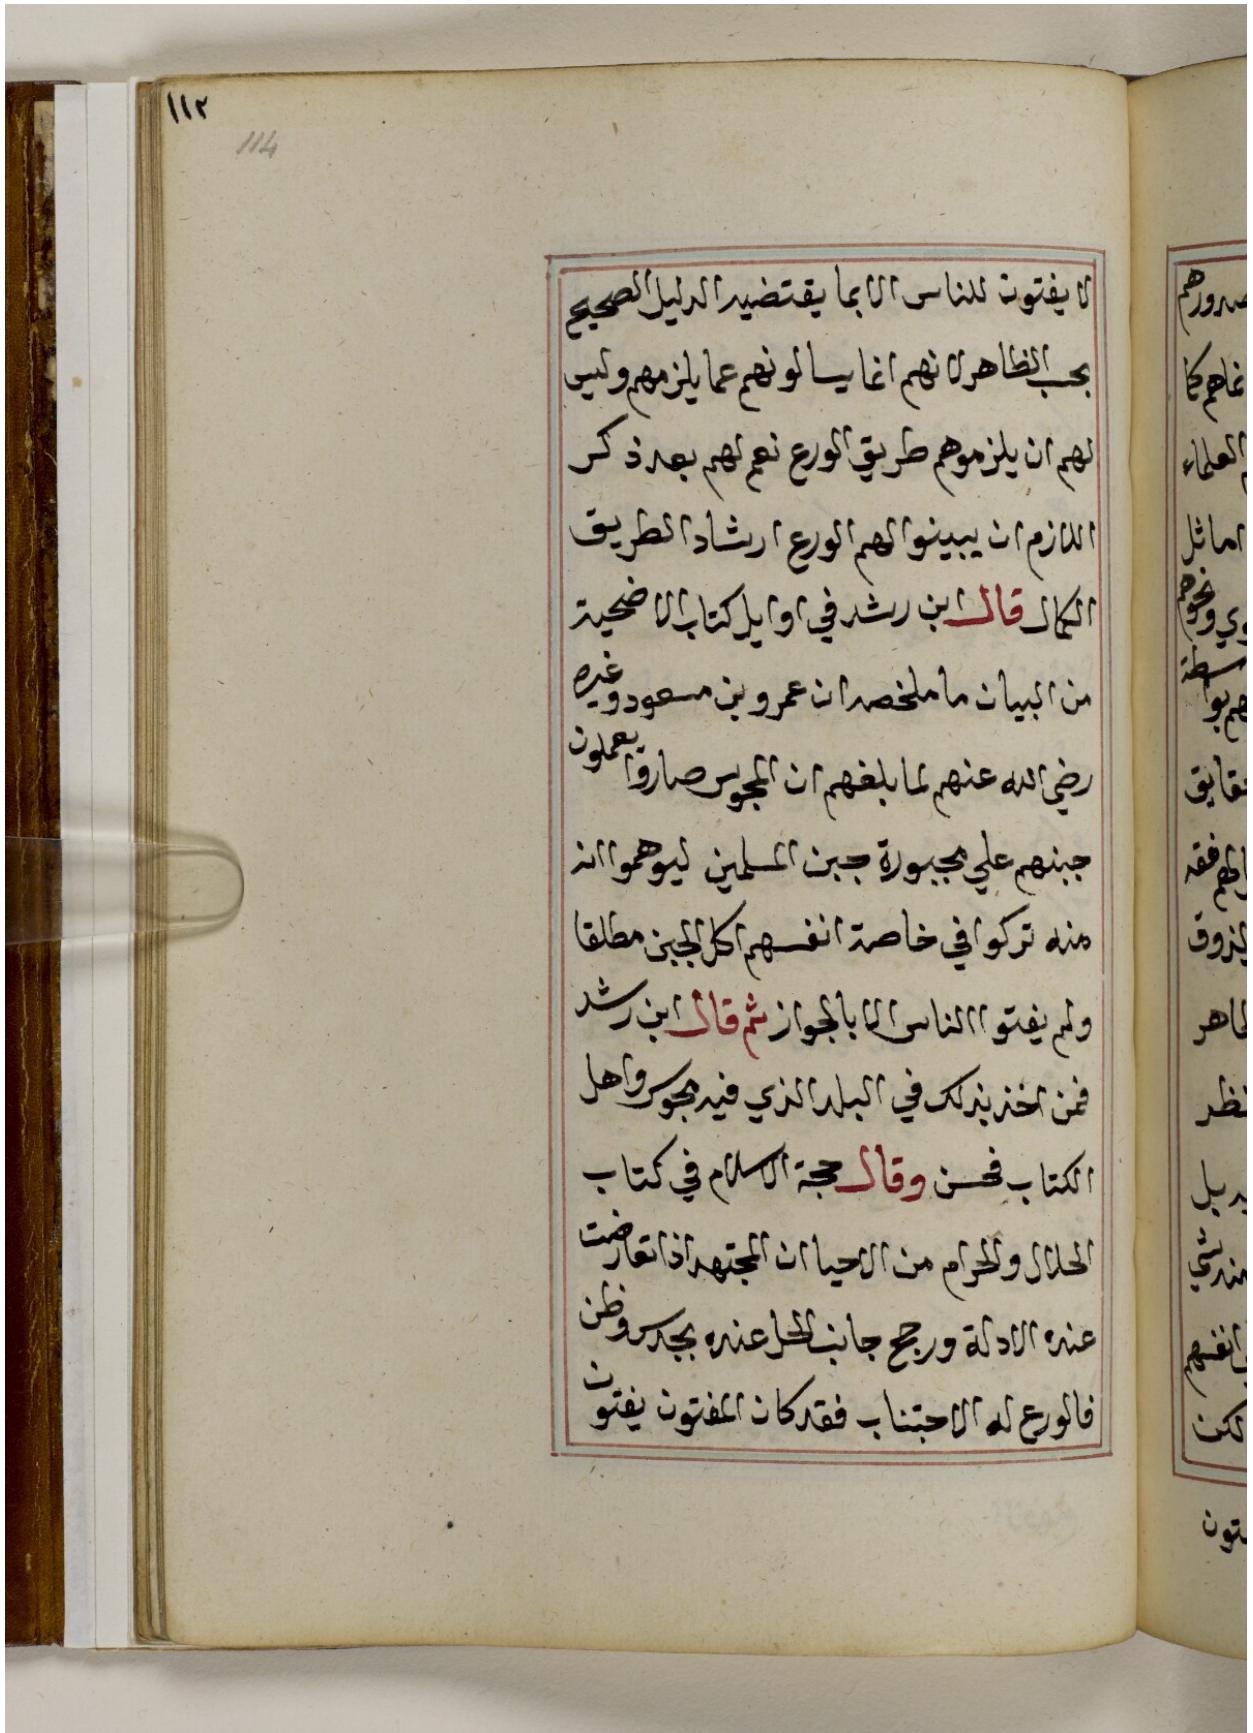 ١١٢
114
لا يفتون للناس الا بما يقتضيه الدليل الصحيح
بحسب الظاهر لانهم انما يسالونهم عما يلزمهم وليس
لهم ان يلزموهم طريق الورع نعم لهم بعد ذكر
اللازم ان يبينوا لهم الورع ارشاد الطريق
الكمال قال ابن رشد في اوايل كتاب الاضحية
من البيان ما ملخصه ان عمر وبن مسعود وغيره
رضي الله عنهم لما بلغهم ان المجوس صاروا يعملون
جبنهم علي مجبورة جبن المسلمين ليوهموا انه
منه تركوا في خاصة انفسهم اكل الجبن مطلقا
ولم يفتوا الناس الا بالجواز ثم قال ابن رشد
فمن اخذ بذلك في البلد الذي فيه مجوس واهل
الكتاب فحسن وقال حجة الاسلام في كتاب
الحلال والحرام من الاحيا ان المجتهد اذا تعارضت
عنده الادلة ورجح جانب الحل عنده بحدس وظن
فالورع له الاجتناب فقد كان المفتون يفتون
صدورهم
العلماء
اماثل
وي ونحوهم
هم بواسطة
انفسهم
لكن